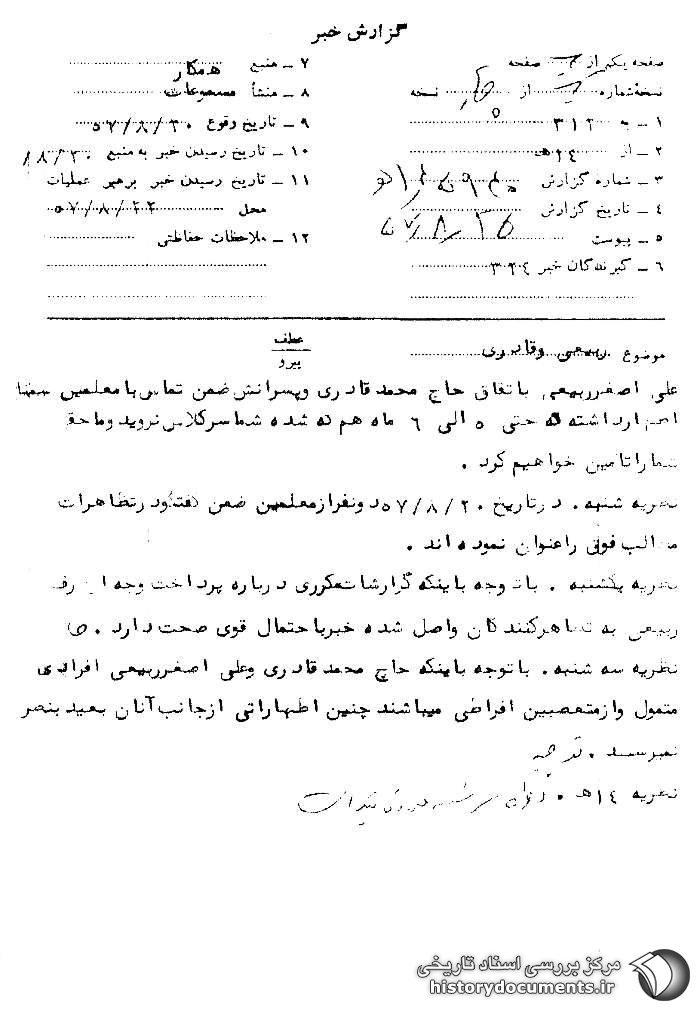 گزارش خبر
صفحه یکم از صفحه
نسخه شماره از نسخه
۱ ـ به ۳۱۲
۲ ـ از ۱۴هـ
۳ ـ شماره گزارش
۴ ـ تاریخ گزارش
۵ ـ پیوست
۶ ـ گیرندگان خبر ۳۲۴
۷ ـ منبع همکار
۸ ـ منشأ مسموعات
۹ ـ تاریخ وقوع ۵۷/۸/۲۰
۱۰ ـ تاریخ رسیدن خبر به منبع
۱۱ ـ تاریخ رسیدن خبر برهبر عملیات
محل ۵۷/۸/۲۲
۱۲ ـ ملاحظات حفاظتی
عطف
پیرو
موضوع ربیعی وقادری
علی اصغرربیعی باتفاق حاج محمدقادری وپسرانش ضمن تماس با معلمین سقز
اظهارداشته که حتی ۵ الی ۶ ماه هم که شده شماسرکلاس نروید وماحقوق
شماراتامین خواهیم کرد .
نظریه شنبه . درتاریخ ۵۷/۸/۲۰ دونفرازمعلمین ضمن گفتگو درتظاهرات
مطالب فوق راعنوان نموده اند .
نظریه یکشنبه . باتوجه باینکه گزارشات مکرری درباره پرداخت وجه ازطرف
ربیعی به تظاهرکنندگان واصل شده خبرباحتمال قوی صحت دارد .
نظریه سه شنبه . باتوجه باینکه حاج محمدقادری وعلی اصغرربیعی افرادی
متمول وازمتعصبین افراطی میباشند چنین اظهاراتی ازجانب آنان بعید بنظر
نمیرسد .
نظریه ۱۴هـ .
مرکز بررسی اسناد تاریخی
historydocuments.ir